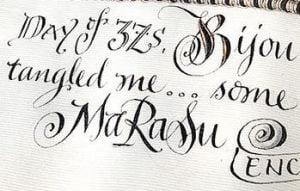 Day of 3Zs, Bijou
tangled me... some
MaRaSu
ENC